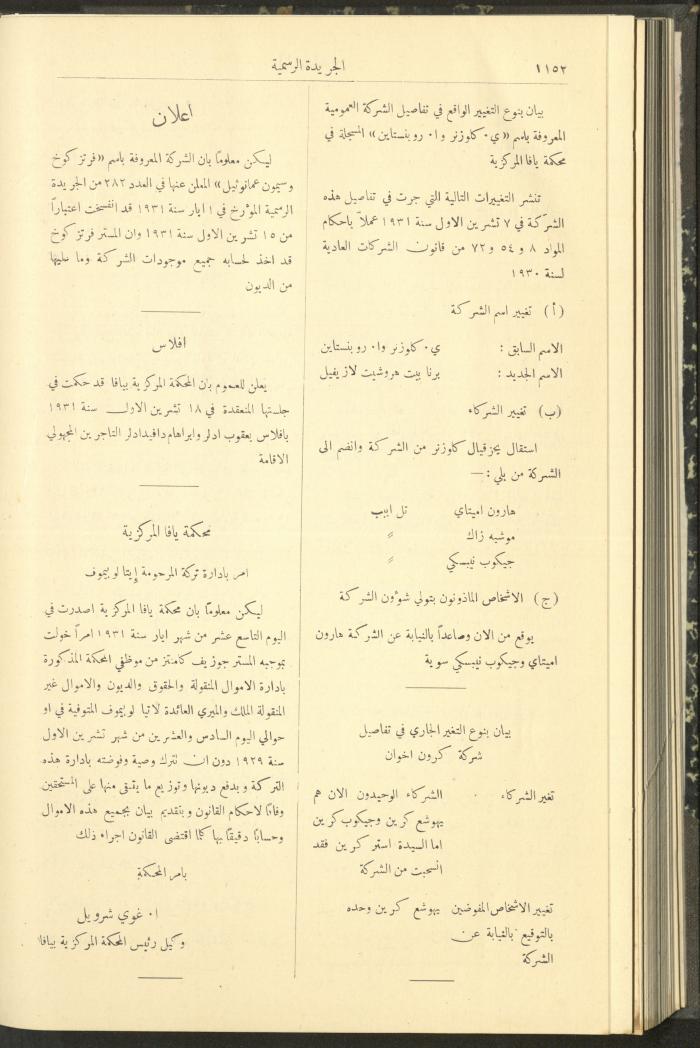 ١١٥٢
الجريدة الرسمية
بيان بنوع التغيير الواقع في تفاصيل الشركة العمومية
المعروفة باسم «ي٠ كلوزنر وا٠ روبنستاين» المسجلة في
محكمة يافا المركزية
تنشر التغييرات التالية التي جرت في تفاصيل هذه
الشركة في ٧ تشرين الاول سنة ١٩٣١ عملاً باحكام
المواد ٨ و ٥٤ و ٧٢ من قانون الشركات العادية
لسنة ١٩٣٠
(أ) تغيير اسم الشركة
الاسم السابق : ي٠ كلوزنر وا٠ روبنستاين
الاسم الجديد : برنا بيت هروشيت لازيفيل
(ب) تغيير الشركاء
استقال يحزقيال كلوزنر من الشركة وانضم الى
الشركة من يلي :—
هارون اميتاي تل ابيب
موشيه زاك »
جيكوب نيبسكي »
(ج) الاشخاص الماذونون بتولي شوءون الشركة
يوقع من الان وصاعداً بالنيابة عن الشركة هارون
اميتاي وجيكوب نيبسكي سوية
بيان بنوع التغير الجاري في تفاصيل
شركة كرون اخوان
تغير الشركاء الشركاء الوحيدون الان هم
يهوشع كرين وجيكوب كرين
اما السيدة استر كرين فقد
انسحبت من الشركة
تغيير الاشخاص المفوضين يهوشع كرين وحده
بالتوقيع بالنيابة عن
الشركة
اعلان
ليكن معلومًا بان الشركة المعروفة باسم «فرتز كوخ
وسيمون عمانوئيل» المعلن عنها في العدد ٢٨٢ من الجريدة
الرسمية الموءرخ في ١ ايار سنة ١٩٣١ قد انفسخت اعتباراً
من ١٥ تشرين الاول سنة ١٩٣١ وان المستر فرتز كوخ
قد اخذ لحسابه جميع موجودات الشركة وما عليها
من الديون
افلاس
يعلن للعموم بان المحكمة المركزية بيافا قد حكمت في
جلستها المنعقدة في ١٨ تشرين الاول سنة ١٩٣١
بافلاس يعقوب ادلر وابراهام دافيد ادلر التاجرين المجهولي
الاقامة
محكمة يافا المركزية
امر بادارة تركة المرحومة إيتا لوييموف
ليكن معلومًا بان محكمة يافا المركزية اصدرت في
اليوم التاسع عشر من شهر ايار سنة ١٩٣١ امراً خولت
بموجبه المستر جوزيف كامنتز من موظفي المحكمة المذكورة
بادارة الاموال المنقولة والحقوق والديون والاموال غير
المنقولة الملك والميري العائدة لاتيا لوييموف المتوفية في او
حوالي اليوم السادس والعشرين من شهر تشرين الاول
سنة ١٩٢٩ دون ان تترك وصية وفوضته بادارة هذه
التركة وبدفع ديونها وتوزيع ما يتبقى منها على المستحقين
وفاقًا لاحكام القانون وبتقديم بيان بجميع هذه الاموال
وحسابًا دقيقًا بها كلما اقتضى القانون اجراء ذلك
بامر المحكمة
ا٠ غوي شرويل
وكيل رئيس المحكمة المركزية بيافا